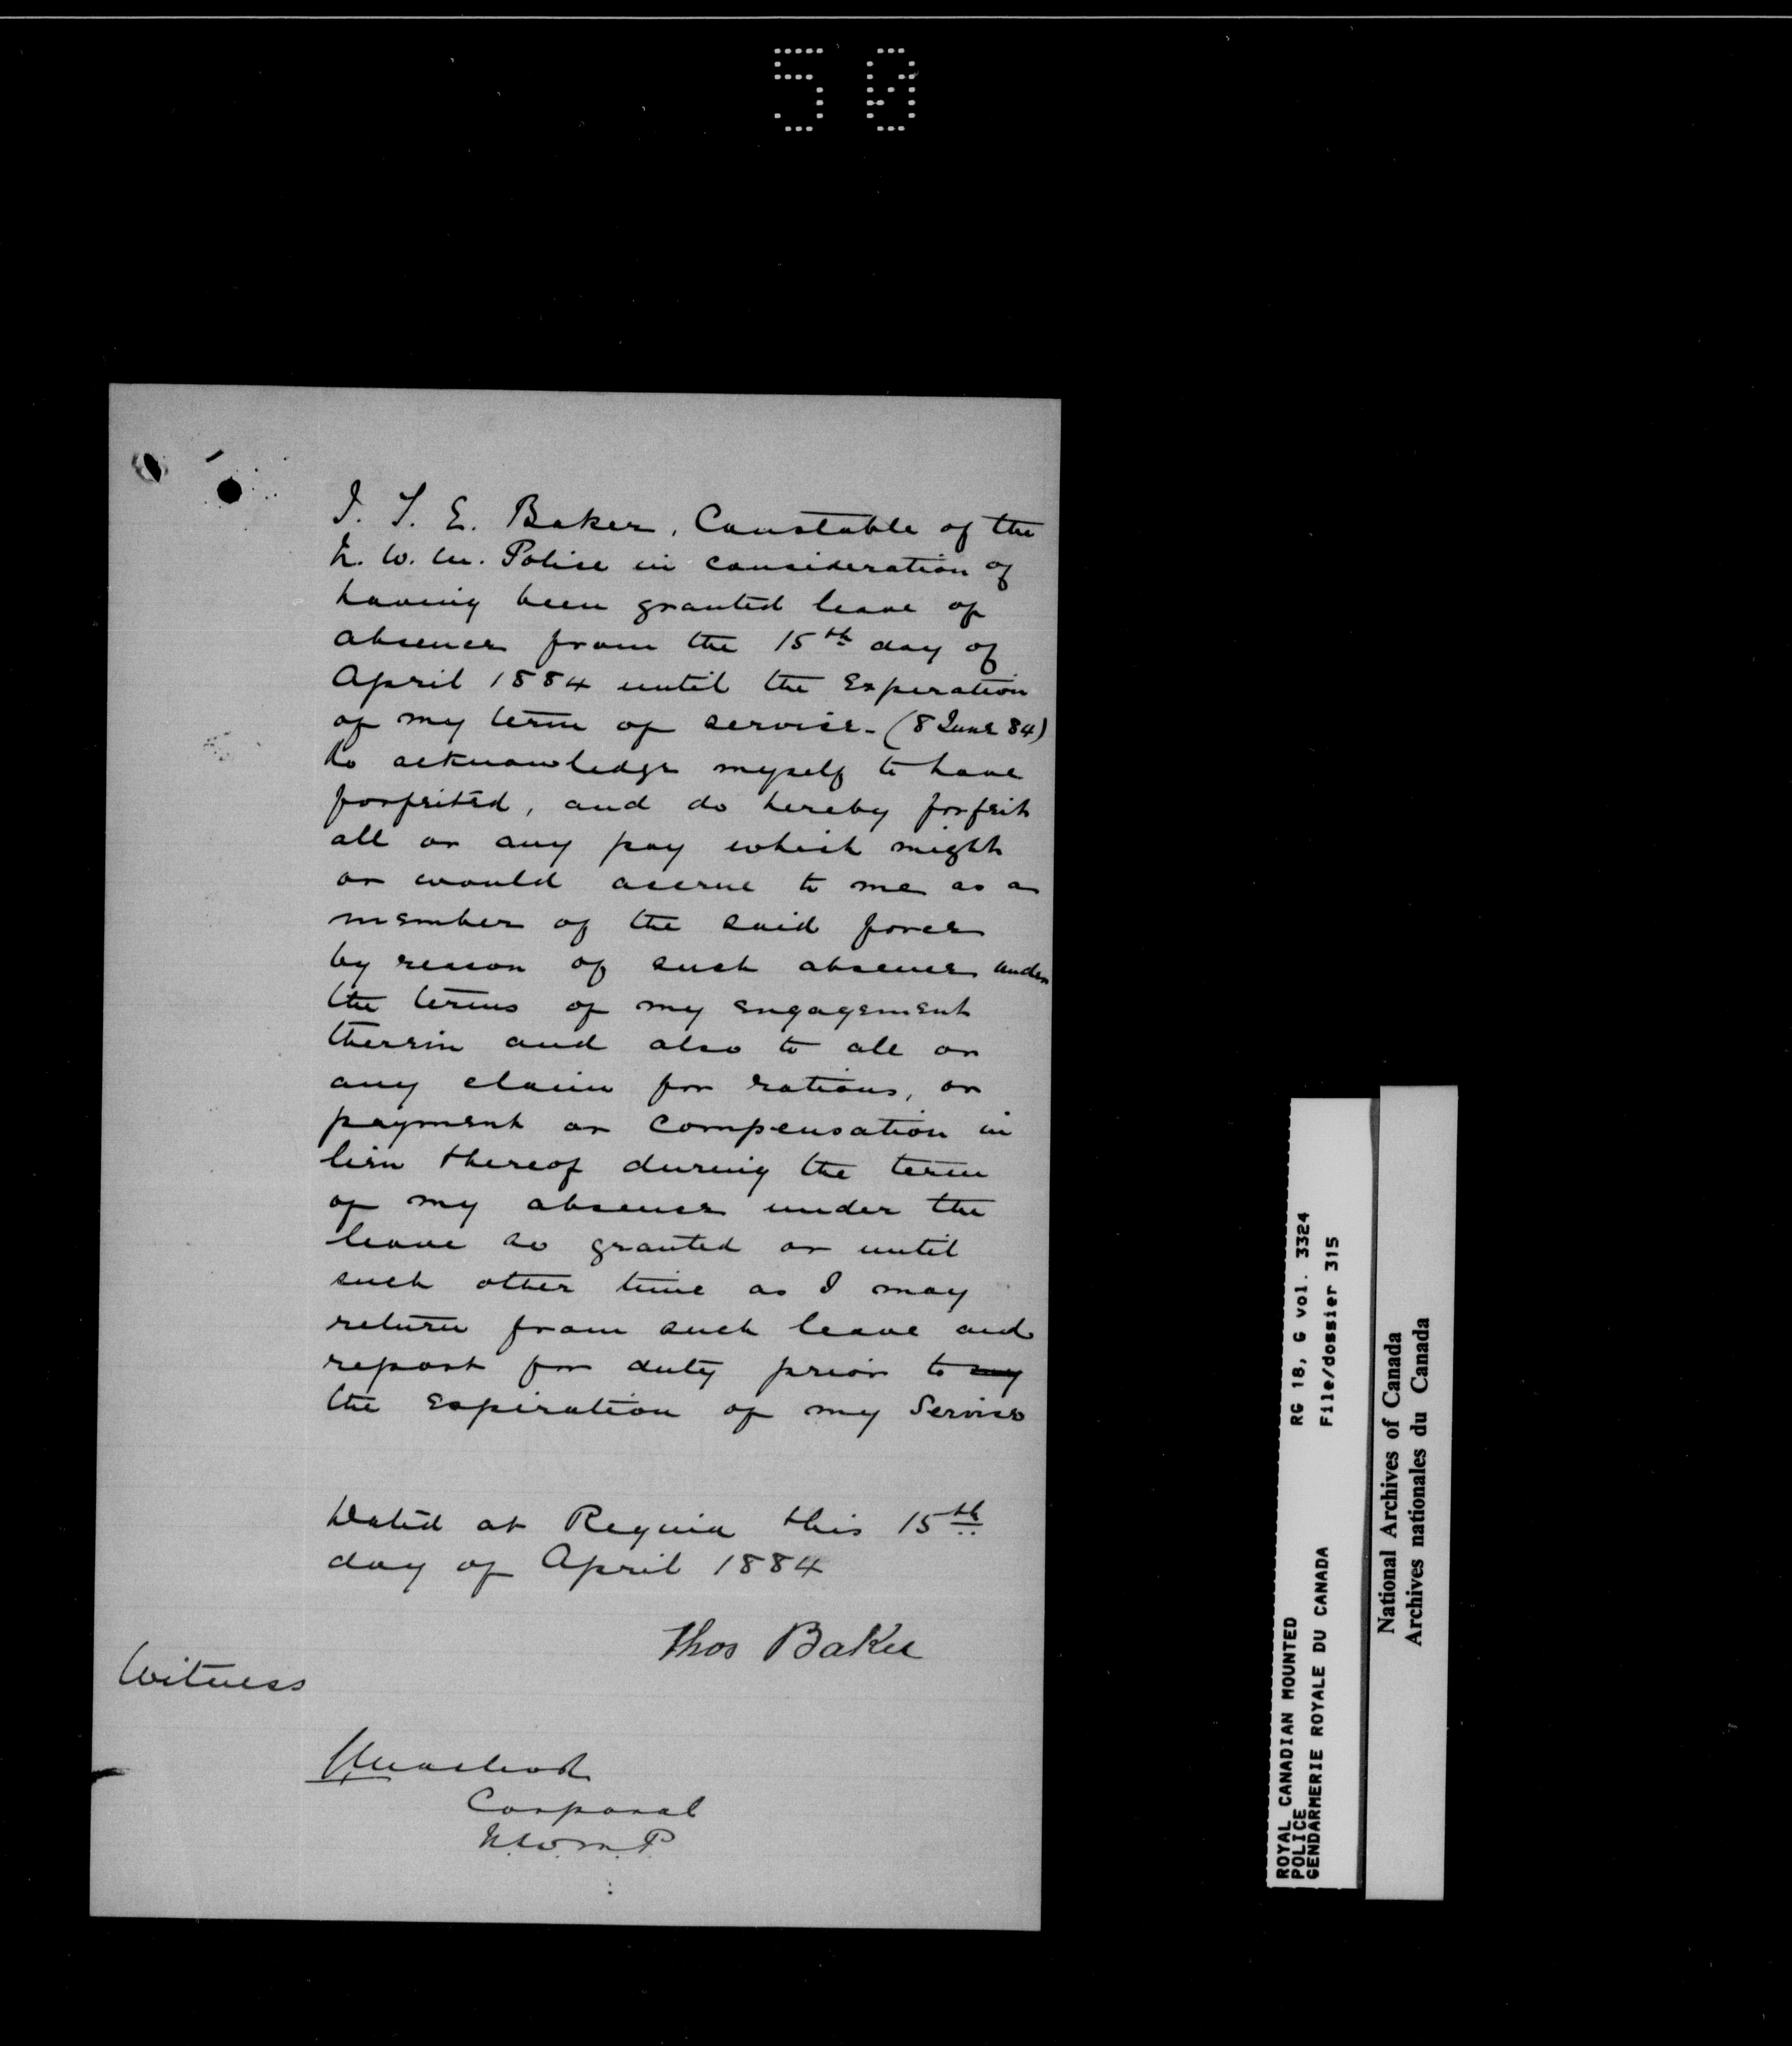 50
I. T. E. Baker, Constable of the
N. W. M. Police in consideration of
having been granted leave of
absence from the 15th day of
April 1884 until the Expiration
of my term of service - (8 June 84)
do acknowledge myself to have
forfeited, and do hereby forfeit
all or any pay which might
or would accrue to me as a
member of the said force
by reason of such absence under
the terms of my engagement
therein and also to all or
any claim for rations, or
payment or compensation in
lieu thereof during the term
of my absence under the
leave so granted or until
such other time as I may
return from such leave and
report for duty prior to my
the expiration of my Service
Dated at Regina this 15th
day of April 1884
Thos Baker
Witness
Corporal
N.W.M.P.
ROYAL CANADIAN MOUNTED RG 18, G vol. 3324
POLICE File/dossier 315
GENDARMERIE ROYALE DU CANADA
National Archives of Canada
Archives nationales du Canada